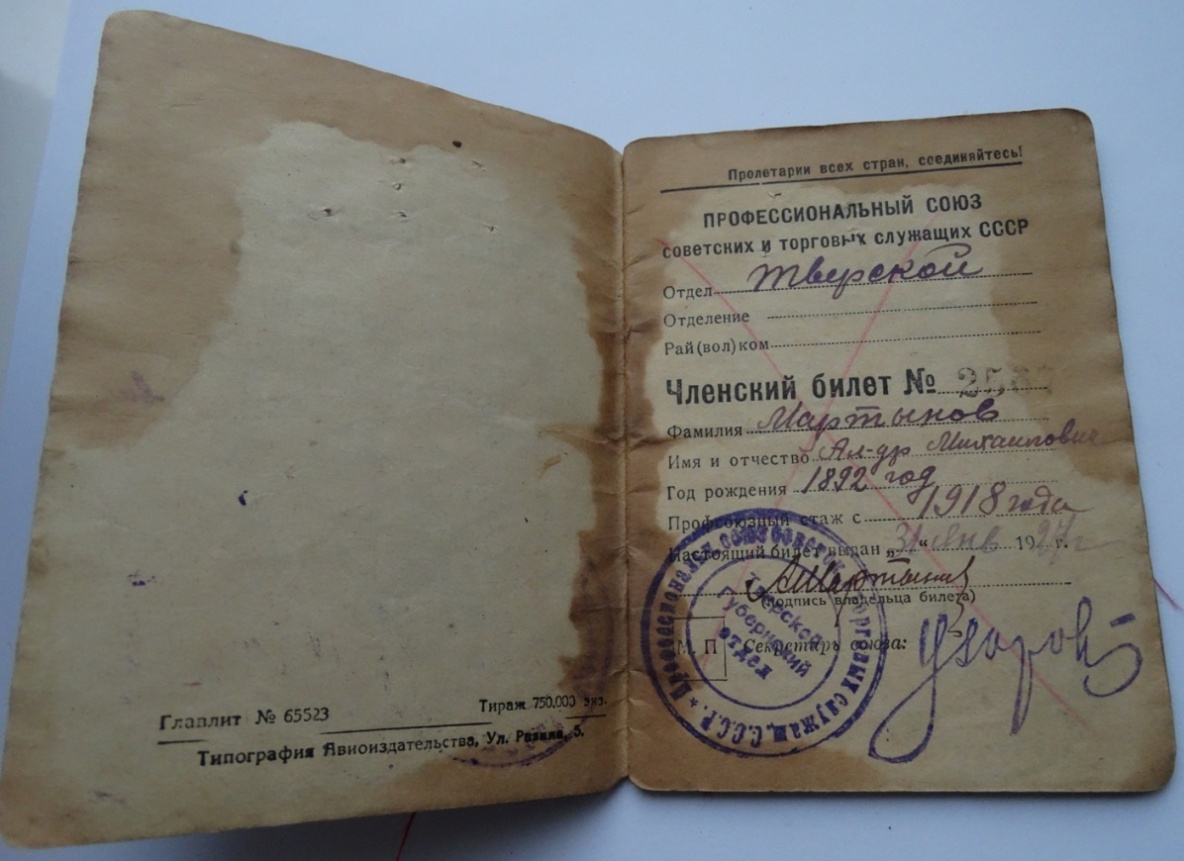 Главлит № 65523
Тираж 750.000 экз.
Типография Авиоиздательства, Ул. Разина, 5.
Пролетарии всех стран, соединяйтесь!
ПРОФЕССИОНАЛЬНЫЙ СОЮЗ
советских и торговых служащих СССР
Отдел Тверской
Отделение
Рай(вол)ком
Членский билет №
Фамилия Мартынов
Имя и отчество Ал-др Михайлович
Год рождения 1892 год
Профсоюзный стаж с 1918 года
Настоящий билет выдан „31“ Янв 1927 г.
АМартынов
(подпись владельца билета)
М. П. Секретарь союза:
Профессиональн. союз советск. и торговых служащ. С.С.С.Р.
Тверской
Губернский
отдел